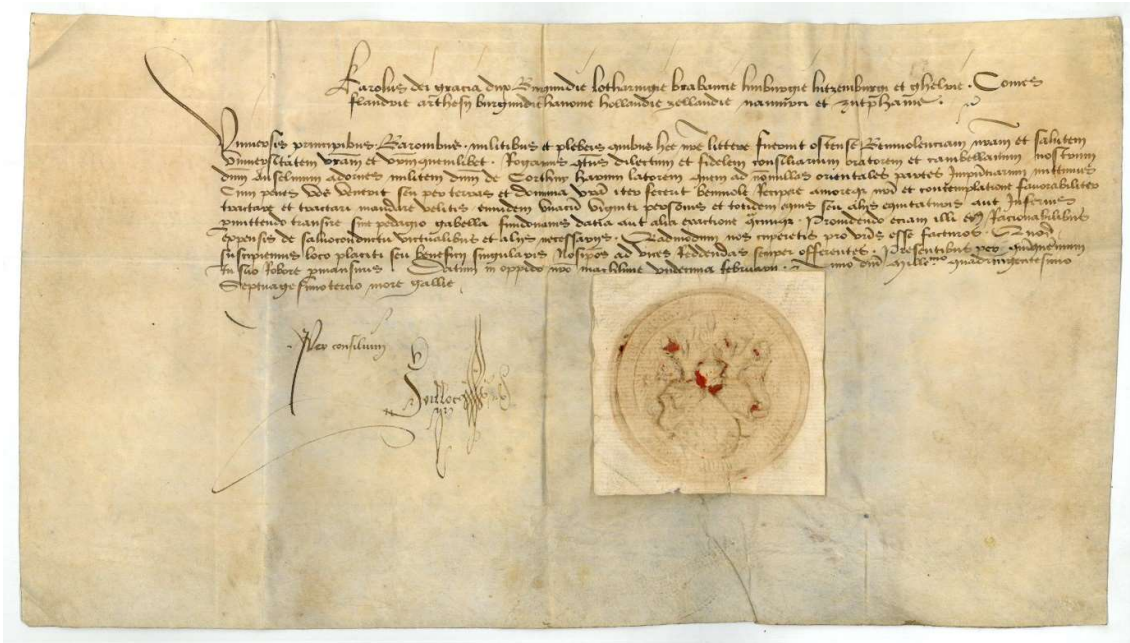 Karolus dei gracia dux Burgundie lotharingie brabancie limburgie lutzemburgi et ghelrie. Comes
flandrie arthesii burgundie hanonie hollandie zellandie namurci et zutphanie.
Universis principibus. Baronibus. militibus et plebeis quibus hee nre littere fuerint ostense Benivolenciam nram et salutem
Universitatem vram et vrum quemlibet. Rogamus dilectum et fidelem consiliarium oratorem et cambellanum nostrum
dnm Anselmum adornes militem dnm de Corthuy harum latorem quem ad nonnullas orientales partes Impnciarum mittimus
Cum penes vos venerit seu per terras et dominia vra iter fecerit benivole Recipere amoreqz nri et contemplatione favorabiliter
tractare et tractari mandare velitis eumdem unacum viginti personis et totidem equis seu aliis equitaturis aut Inferius
pmittendo transire sine pedagio gabella fundinavis dacia aut alia exactione. Providendo eciam illi Racionabilibus
expensis de salvoconductu victualibus et aliis necessariis. Quemadmodum nos cuperetis pro vris esse facturos. Quod
suscipiemus loco placiti seu beneficii singularis Nosipos ad vices Reddendas semper offerentes. Presentibus per quinquennium
In suo Robore pmansuris. Datum in oppido nro machlinie undecima februarii. Anno dni millemo quadringentesimo
Septuagesimotercio more gallie
Per consilium